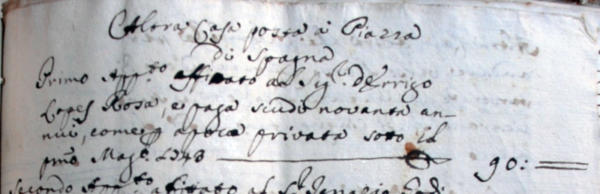 Altra Casa posta à Piazza
di Spagna
Primo App.to affittato al Sig.r D. Errigo
Lopes Rosa, e paga scudi novanta an-
nui, come p apoca privata sotto il
pmo Magg. 1743 90:
Secondo App.to affittato al S.r Ignazio